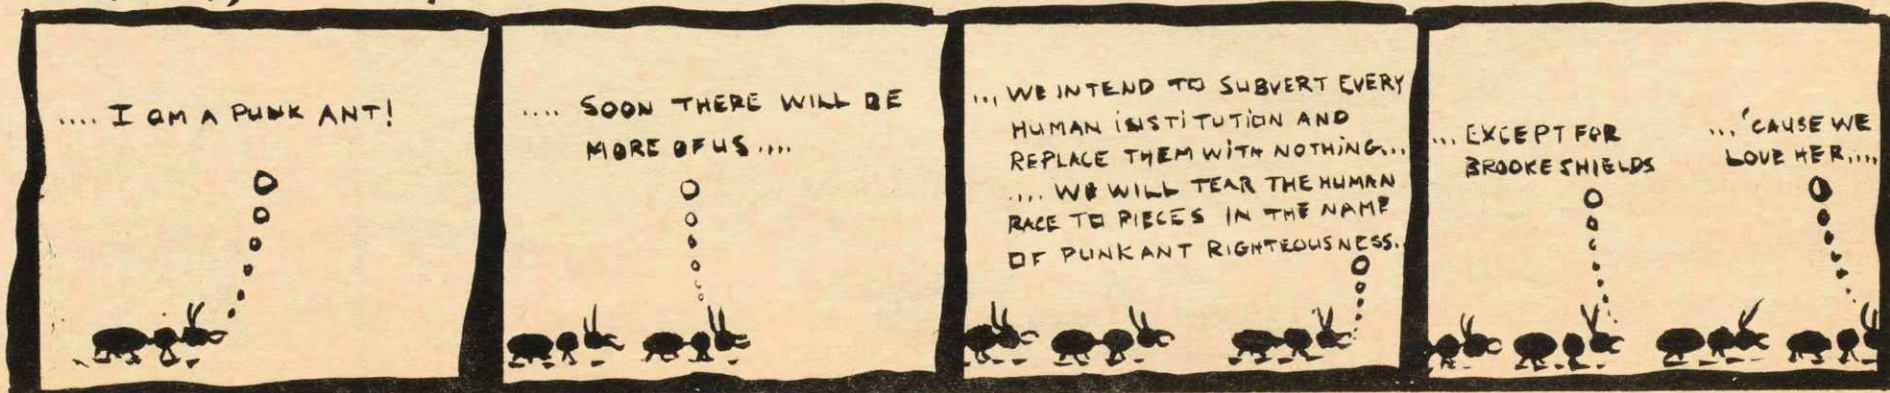 .... I AM A PUNK ANT!
.... SOON THERE WILL BE
MORE OF US ....
... WE INTEND TO SUBVERT EVERY
HUMAN INSTITUTION AND
REPLACE THEM WITH NOTHING...
.... WE WILL TEAR THE HUMAN
RACE TO PIECES IN THE NAME
OF PUNK ANT RIGHTEOUSNESS..
... EXCEPT FOR
BROOKE SHIELDS
... 'CAUSE WE
LOVE HER....